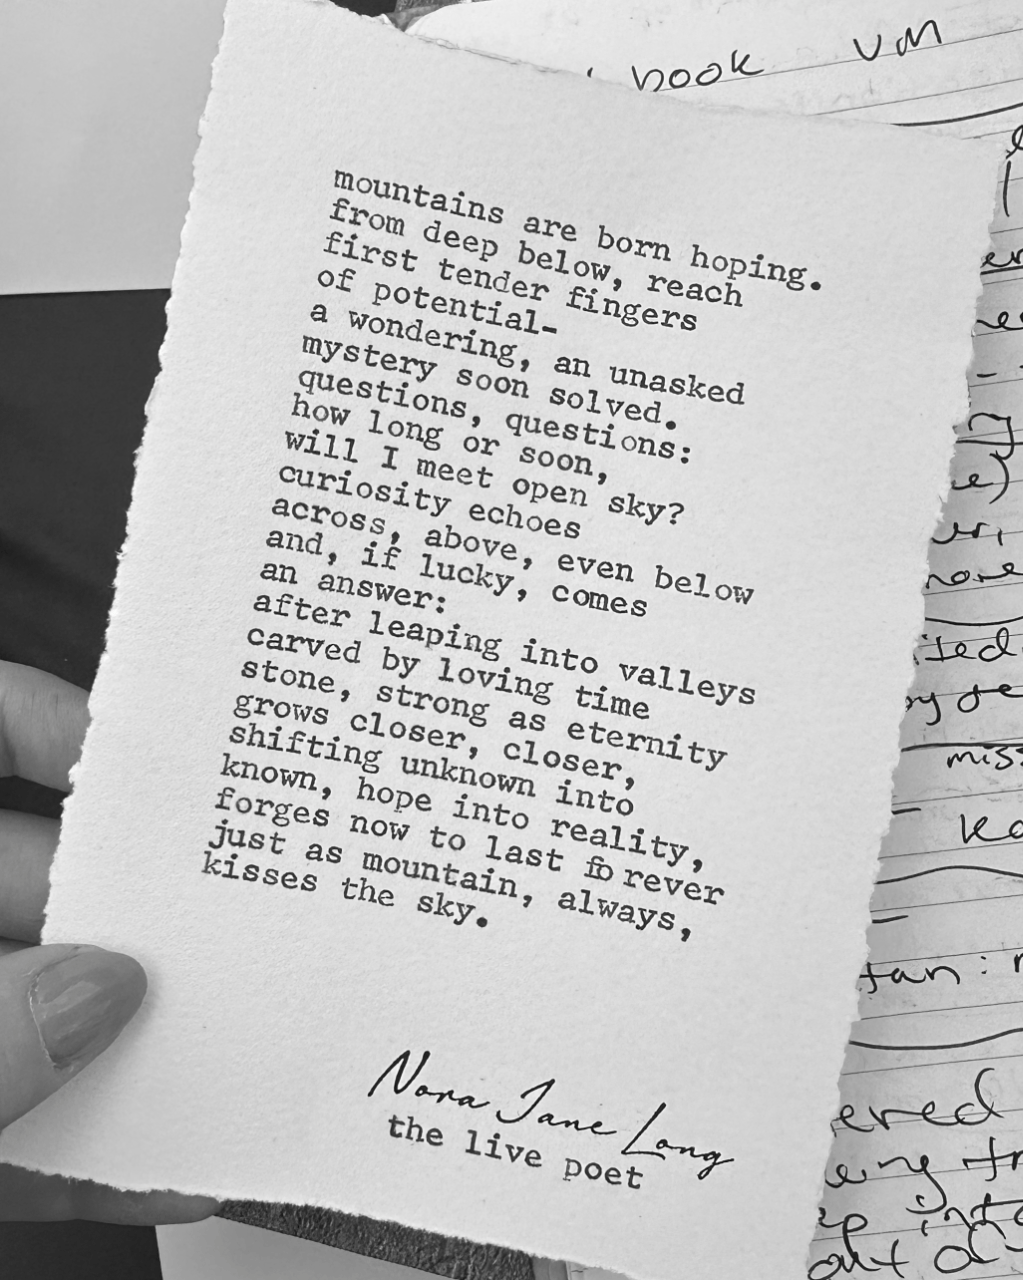 book VM
mountains are born hoping.
from deep below, reach
first tender fingers
of potential-
a wondering, an unasked
mystery soon solved.
questions, questions:
how long or soon,
will I meet open sky?
curiosity echoes
across, above, even below
and, if lucky, comes
an answer:
after leaping into valleys
carved by loving time
stone, strong as eternity
grows closer, closer,
shifting unknown into
known, hope into reality,
forges now to last forever
just as mountain, always,
kisses the sky.
Nora Jane Long
the live poet